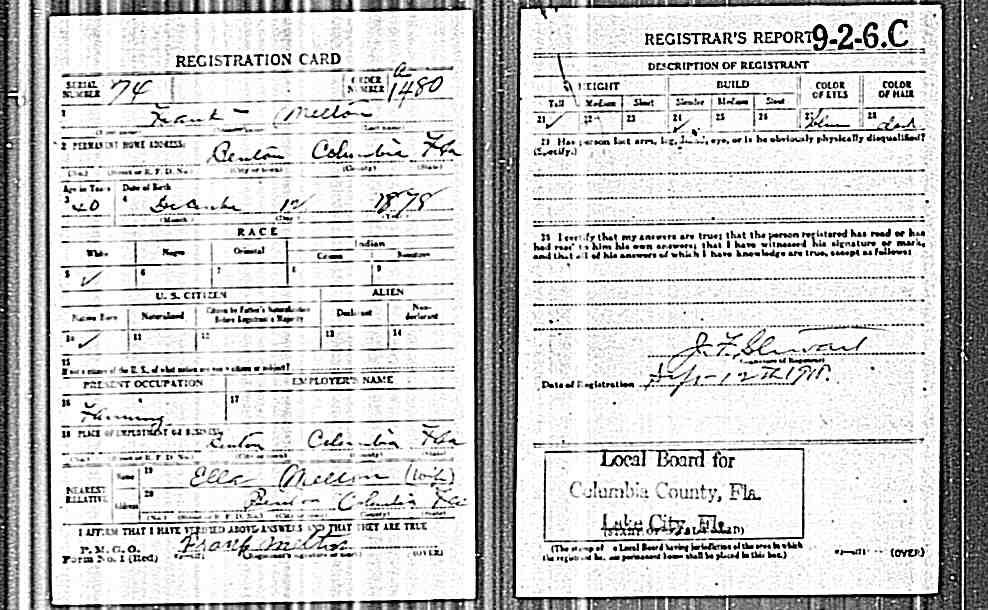 REGISTRATION CARD
SERIAL NUMBER 74 ORDER NUMBER A 1480
1 Frank – Melton
(First name) (Middle name) (Last name)
2 PERMANENT HOME ADDRESS:
Benton Columbia Fla
(No.) (Street or R. F. D. No.) (City or town) (County) (State)
Age in Years Date of Birth
3 40 4 December 12 1878
(Month.) (Day.) (Year.)
RACE
White Negro Oriental Indian
Citizen Noncitizen
5 ✓ 6 7 8 9
U. S. CITIZEN ALIEN
Native Born Naturalized Citizen by Father's Naturalization Before Registrant's Majority Declarant Non-declarant
10 ✓ 11 12 13 14
15
If not a citizen of the U. S., of what nation are you a citizen or subject?
PRESENT OCCUPATION EMPLOYER'S NAME
16 Farming 17
18 PLACE OF EMPLOYMENT OR BUSINESS:
Benton Columbia Fla
(No.) (Street or R. F. D. No.) (City or town) (County) (State)
NEAREST RELATIVE Name 19 Ella Melton (Wife)
Address 20 Benton Columbia Fla
(No.) (Street or R. F. D. No.) (City or town) (County) (State)
I AFFIRM THAT I HAVE VERIFIED ABOVE ANSWERS AND THAT THEY ARE TRUE
P. M. G. O.
Form No. 1 (Red) Frank Melton
(Registrant's signature or mark) (OVER)
REGISTRAR'S REPORT 9-2-6.C
DESCRIPTION OF REGISTRANT
HEIGHT BUILD COLOR OF EYES COLOR OF HAIR
Tall Medium Short Slender Medium Stout
21 ✓ 22 23 24 ✓ 25 26 27 blue 28 dark
29 Has person lost arm, leg, hand, eye, or is he obviously physically disqualified?
(Specify.)
30 I certify that my answers are true; that the person registered has read or has
had read to him his own answers; that I have witnessed his signature or mark,
and that all of his answers of which I have knowledge are true, except as follows:
J. F. Stewart
(Signature of Registrar)
Date of Registration Sep - 12th 1918.
Local Board for
Columbia County, Fla.
Lake City, Fla.
(STAMP OF LOCAL BOARD)
(The stamp of the Local Board having jurisdiction of the area in which
the registrant has his permanent home shall be placed in this box.)
(OVER)